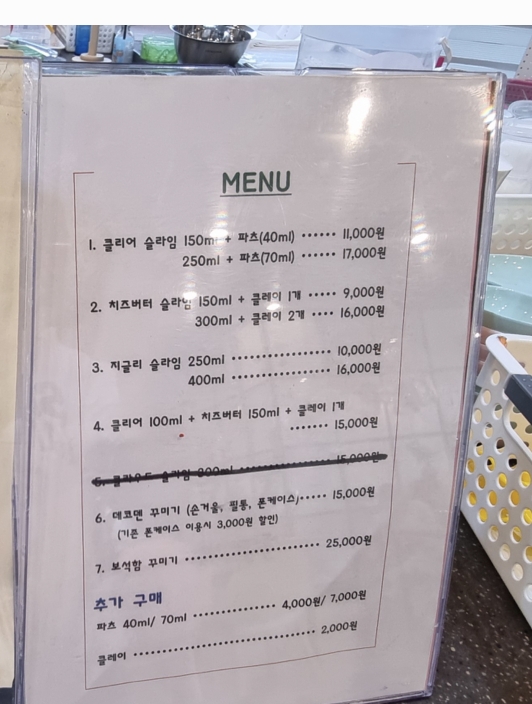 MENU
1. 클리어 슬라임 150ml + 파츠(40ml) ······ 11,000원
250ml + 파츠(70ml) ······ 17,000원
2. 치즈버터 슬라임 150ml + 클레이 1개 ····· 9,000원
300ml + 클레이 2개 ···· 16,000원
3. 지글리 슬라임 250ml ················· 10,000원
400ml ················· 16,000원
4. 클리어 100ml + 치즈버터 150ml + 클레이 1개
······· 15,000원
5. 클라우드 슬라임 300ml ················ 15,000원
6. 데코덴 꾸미기 (손거울, 필통, 폰케이스)····· 15,000원
(기존 폰케이스 이용시 3,000원 할인)
7. 보석함 꾸미기 ······················· 25,000원
추가 구매
파츠 40ml/ 70ml ·············· 4,000원/ 7,000원
클레이 ······························· 2,000원